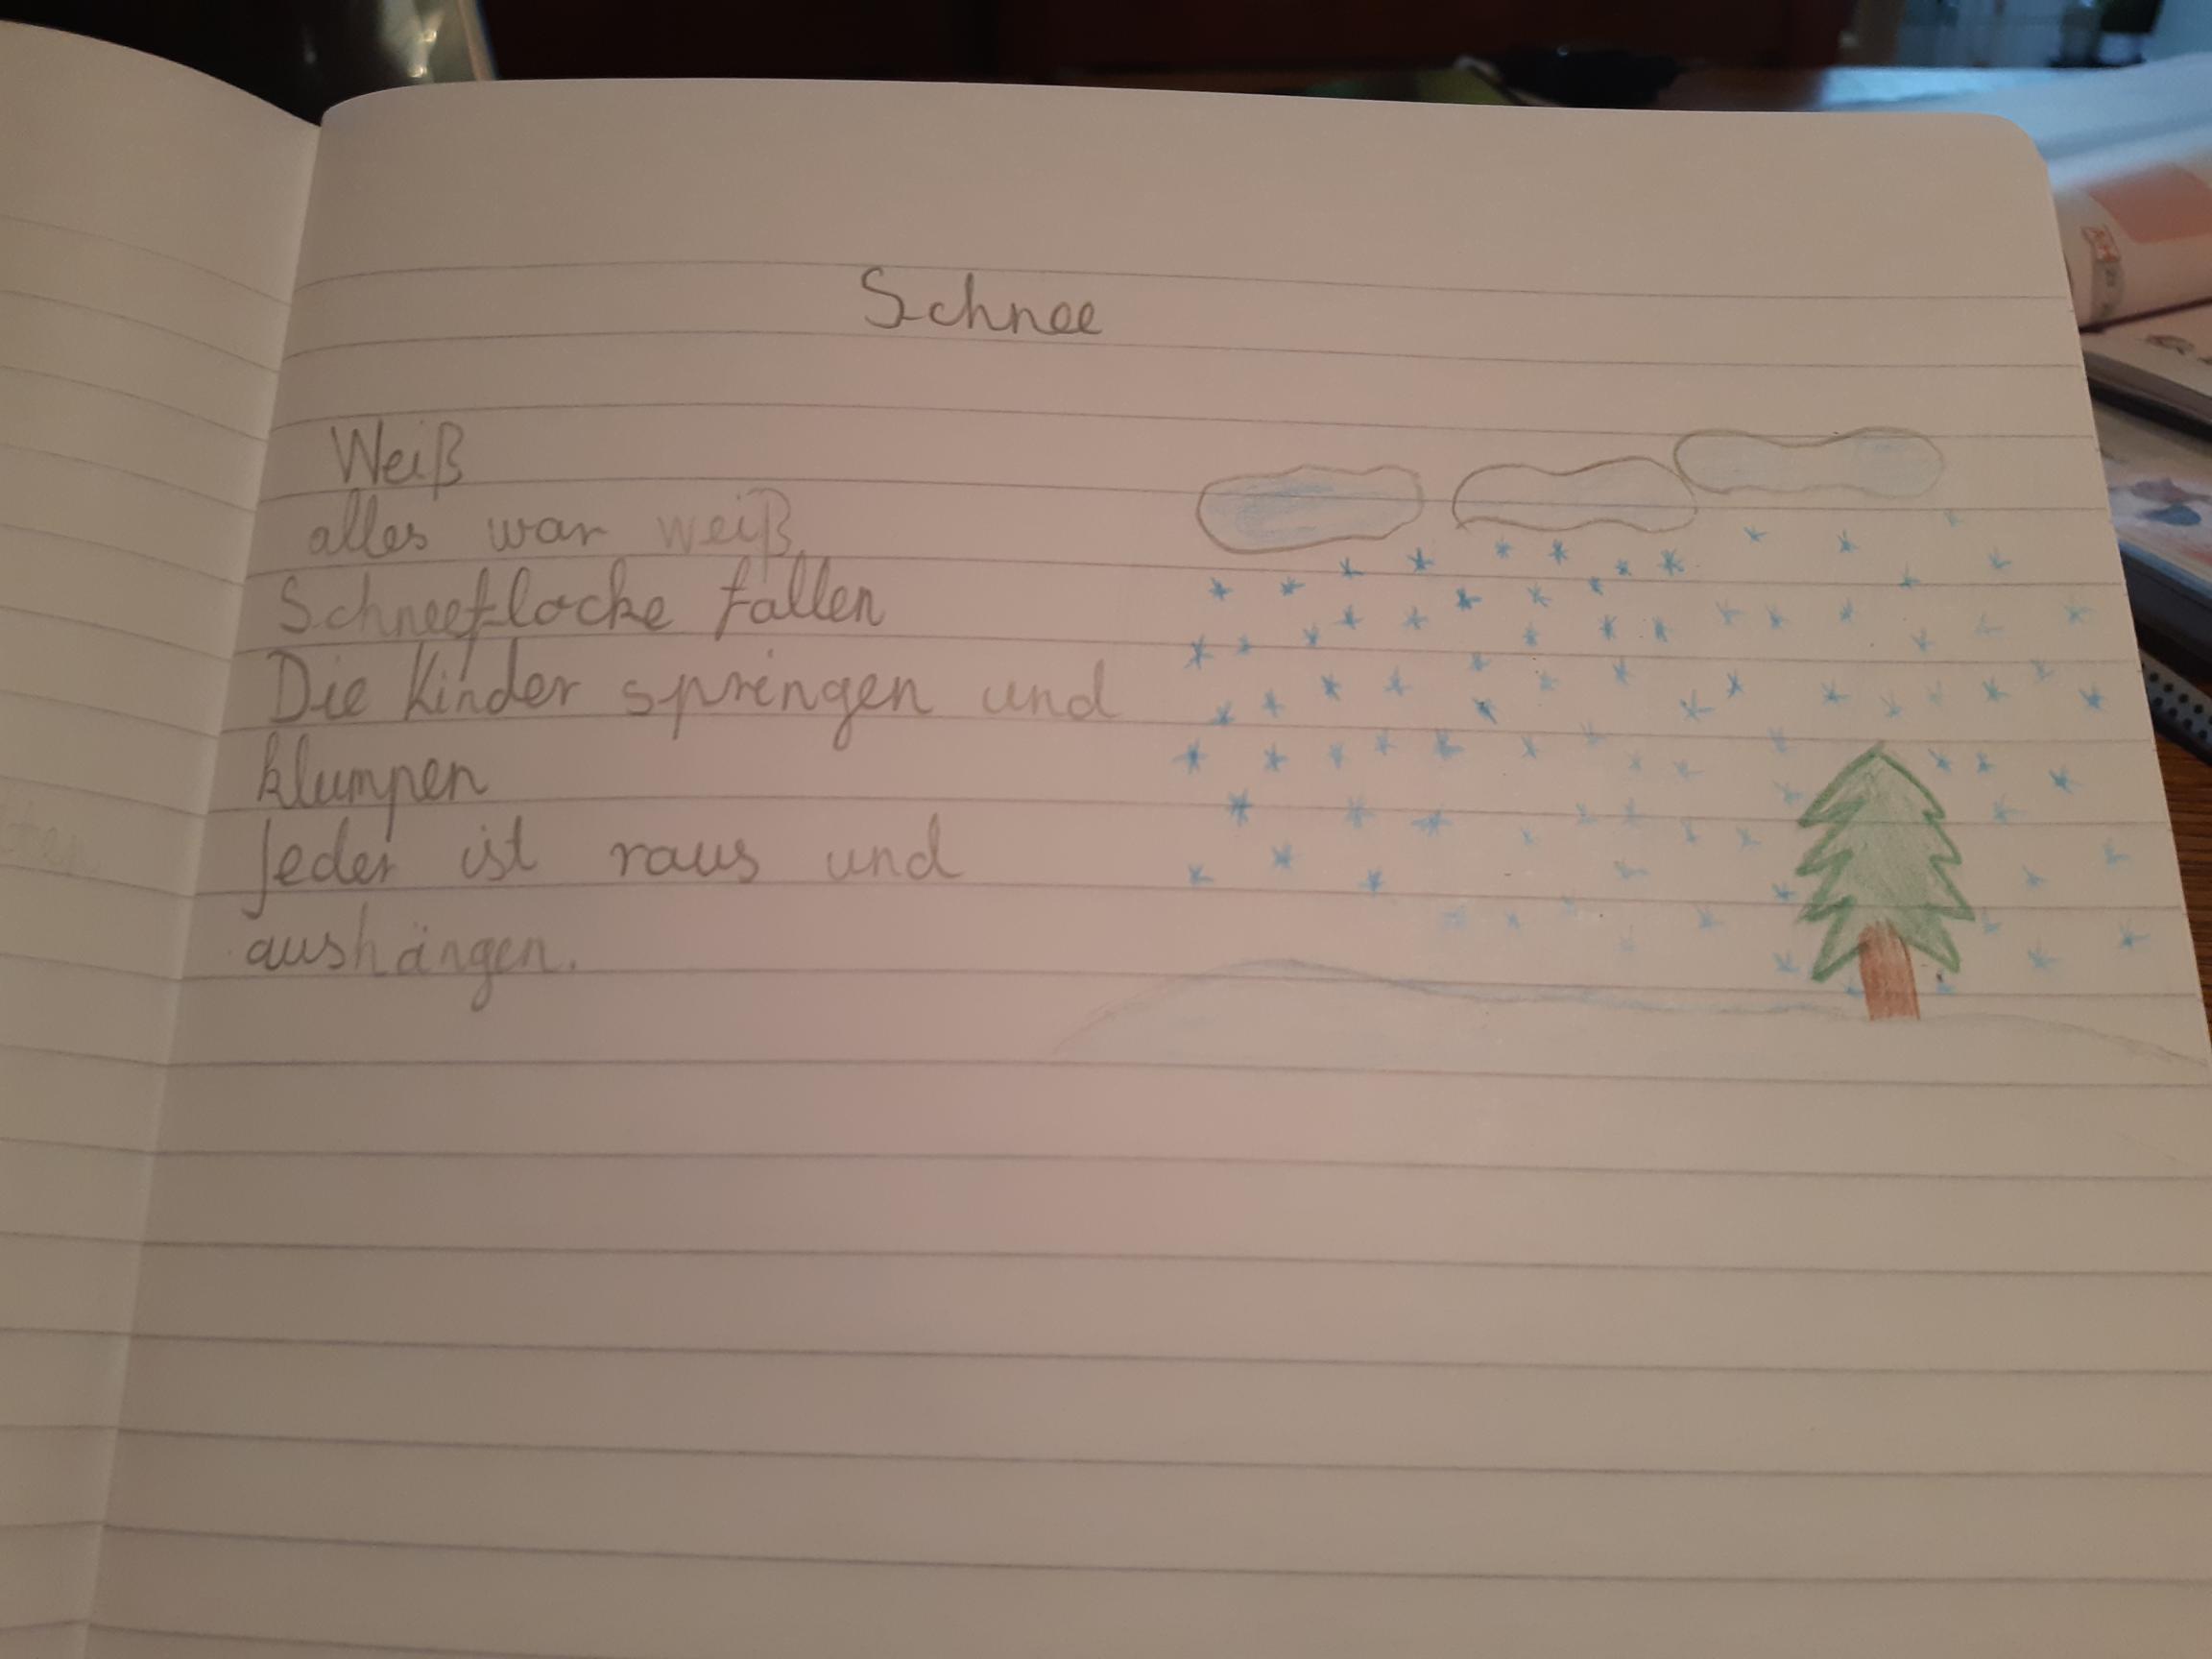 Schnee
Weiß
alles war weiß
Schneeflocke fallen
Die Kinder springen und
klumpen
Jeder ist raus und
aushängen.